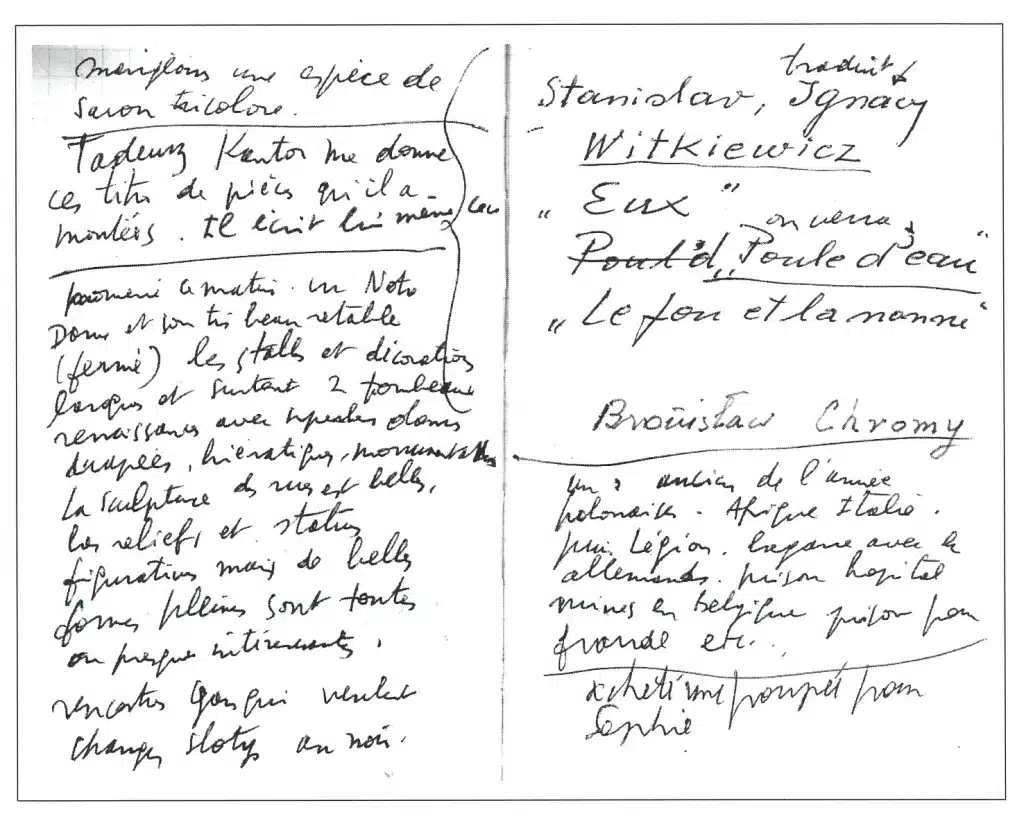 une espèce de
savon tricolore.
Tadeusz Kantor me donne
ces titres de pièces qu'il a
montées. Il écrit lui même
ce matin. Notre
Dame et son très beau retable
(fermé) les stalles et décorations
et surtout 2 tombeaux
renaissance avec dames
drapées, hiératiques, monumentales
La sculpture des rues est belle,
les reliefs et statues
figuratives mais de belles
formes pleines sont toutes
ou presque intéressantes.
rencontres qui veulent
changer slotys au noir.
traduit
Stanislav, Ignacy
Witkiewicz
„ Eux ”
on verra
Poul d'„Poule d'eau“
„Le fou et la nonne“
Bronisław Chromy
un ancien de l'armée
polonaise. Afrique Italie.
puis Légion. bagarre avec
allemands. prison hopital
mines en belgique prison pour
fraude etc...
acheté une poupée pour
Sophie